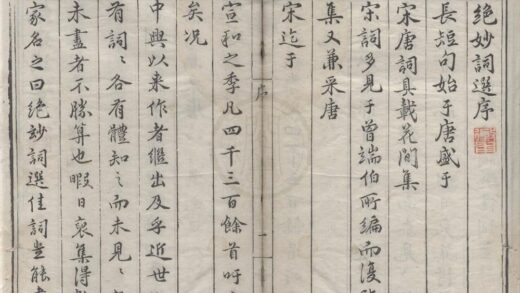 絕妙詞選序
長短句始于唐盛于
宋唐詞具載花間集
宋詞多見于曾端伯所編而復
集又兼采唐
宋迄于
宣和之季凡四千三百餘首吁
矣况
中興以来作者繼出及乎近世
有詞詞各有體知之而未見
未盡者不勝算也暇日裒集得
家名之曰絕妙詞選佳詞豈能
序
一